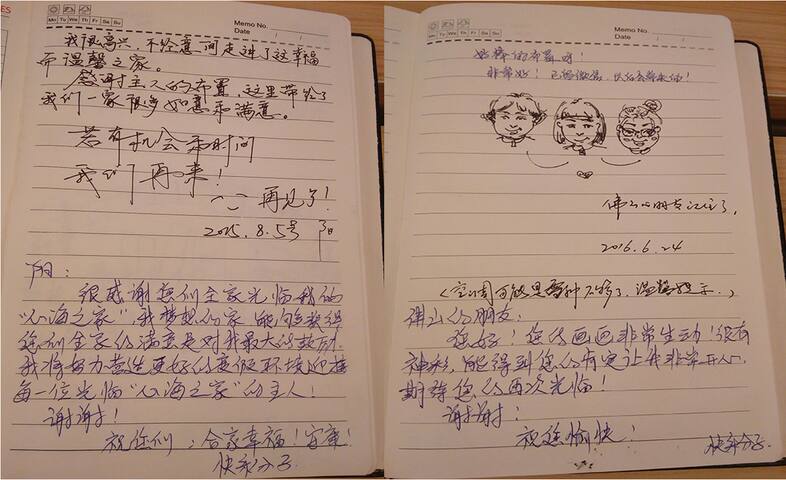 Memo No.
Date
Mo Tu We Th Fr Sa Su
我很高兴，不经意间走进了这幸福
而温馨之家。
感谢主人的布置，这里带给了
我们一家很多如意和满意。
若有机会和时间
我们再来！
再见了！
2015.8.5号 阳
阳：
很感谢您们全家光临我的
“心海之家”，我梦想的家，能够获得
您们全家的满意是对我最大的鼓励。
我将努力营造更好的度假环境迎接
每一位光临“心海之家”的主人！
谢谢！
祝您们：合家幸福！安康！
快乐分子
Memo No.
Date
Mo Tu We Th Fr Sa Su
好棒的布置呀！
非常好！
佛山的朋友记住了。
2016.6.24
（空调可能是雪种不够了，温馨提示。）
佛山的朋友：
您好！您的画画非常生动！很有
神彩，能得到您的肯定让我非常开心，
期待您的再次光临！
谢谢！
祝您愉快！
快乐分子